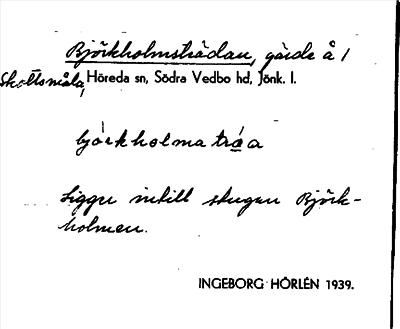 Björkholmsträdan, gärde å 1
Skottsmåla, Höreda sn, Södra Vedbo hd, Jönk. l.
bjórkholma tråa
Ligger intill stugan Björk-
holmen.
INGEBORG HÖRLÉN 1939.